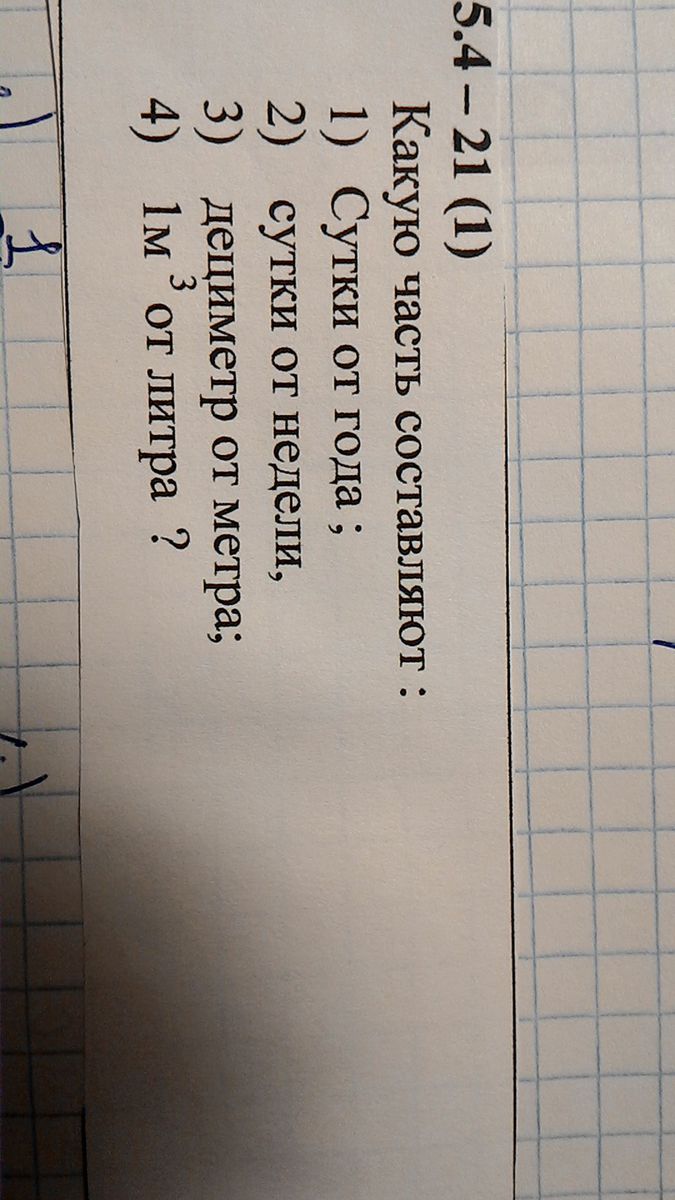 5.4 – 21 (1)
Какую часть составляют :
1) Сутки от года ;
2) сутки от недели,
3) дециметр от метра;
4) 1м ³ от литра ?